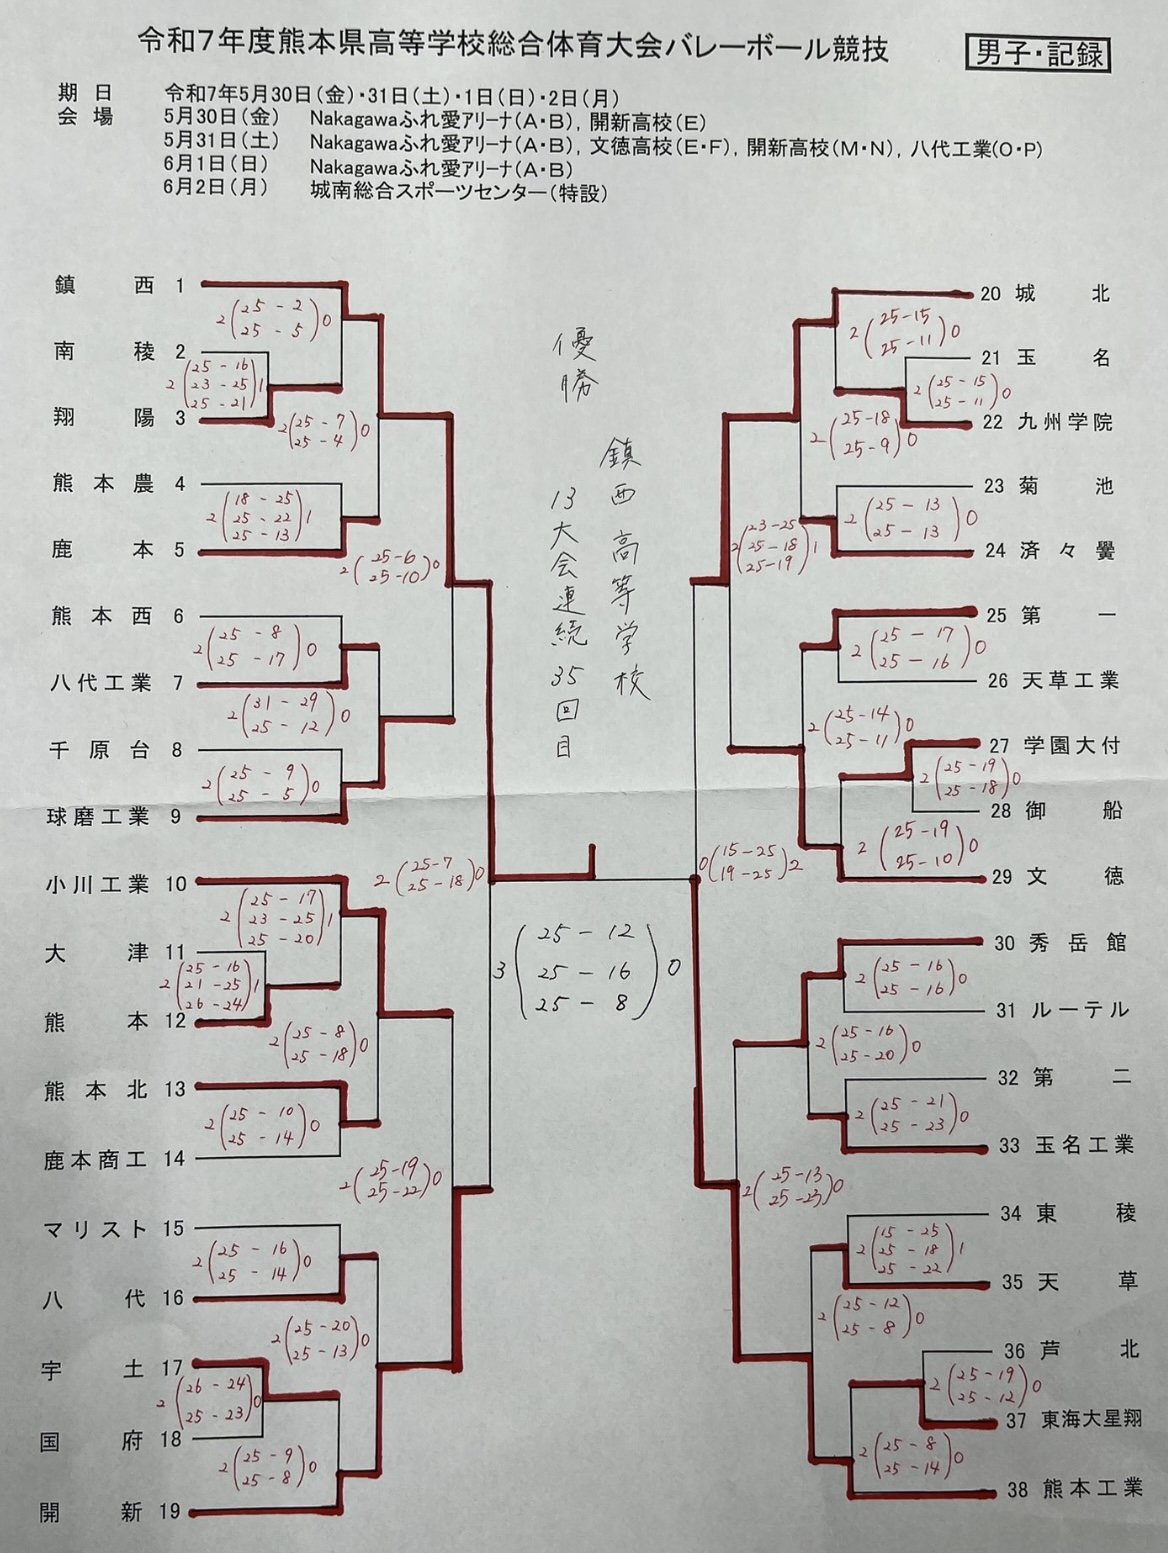 令和7年度熊本県高等学校総合体育大会バレーボール競技
男子・記録
期日 令和7年5月30日(金)・31日(土)・1日(日)・2日(月)
会場 5月30日(金) Nakagawaふれ愛アリーナ(A・B), 開新高校(E)
5月31日(土) Nakagawaふれ愛アリーナ(A・B), 文徳高校(E・F), 開新高校(M・N), 八代工業(O・P)
6月1日(日) Nakagawaふれ愛アリーナ(A・B)
6月2日(月) 城南総合スポーツセンター(特設)
鎮西 1
2(25-2 25-5)0
南稜 2
2(25-16 23-25 25-21)1
翔陽 3
2(25-7 25-4)0
熊本農 4
2(18-25 25-22 25-13)1
鹿本 5
2(25-6 25-10)0
熊本西 6
2(25-8 25-17)0
八代工業 7
2(31-29 25-12)0
千原台 8
2(25-9 25-5)0
球磨工業 9
2(25-7 25-18)0
小川工業 10
2(25-17 23-25 25-20)1
大津 11
2(25-16 21-25 26-24)1
熊本 12
2(25-8 25-18)0
熊本北 13
2(25-10 25-14)0
鹿本商工 14
2(25-19 25-22)0
マリスト 15
2(25-16 25-14)0
八代 16
2(25-20 25-13)0
宇土 17
2(26-24 25-23)0
国府 18
2(25-9 25-8)0
開新 19
優勝
鎮西高等学校
13大会連続35回目
3(25-12 25-16 25-8)0
20 城北
2(25-15 25-11)0
21 玉名
2(25-15 25-11)0
22 九州学院
2(25-18 25-9)0
23 菊池
2(25-13 25-13)0
24 済々黌
2(23-25 25-18 25-19)1
25 第一
2(25-17 25-16)0
26 天草工業
2(25-14 25-11)0
27 学園大付
2(25-19 25-18)0
28 御船
2(25-19 25-10)0
29 文徳
0(15-25 19-25)2
30 秀岳館
2(25-16 25-16)0
31 ルーテル
2(25-16 25-20)0
32 第二
2(25-21 25-23)0
33 玉名工業
2(25-13 25-23)0
34 東稜
2(15-25 25-18 25-22)1
35 天草
2(25-12 25-8)0
36 芦北
2(25-19 25-12)0
37 東海大星翔
2(25-8 25-14)0
38 熊本工業